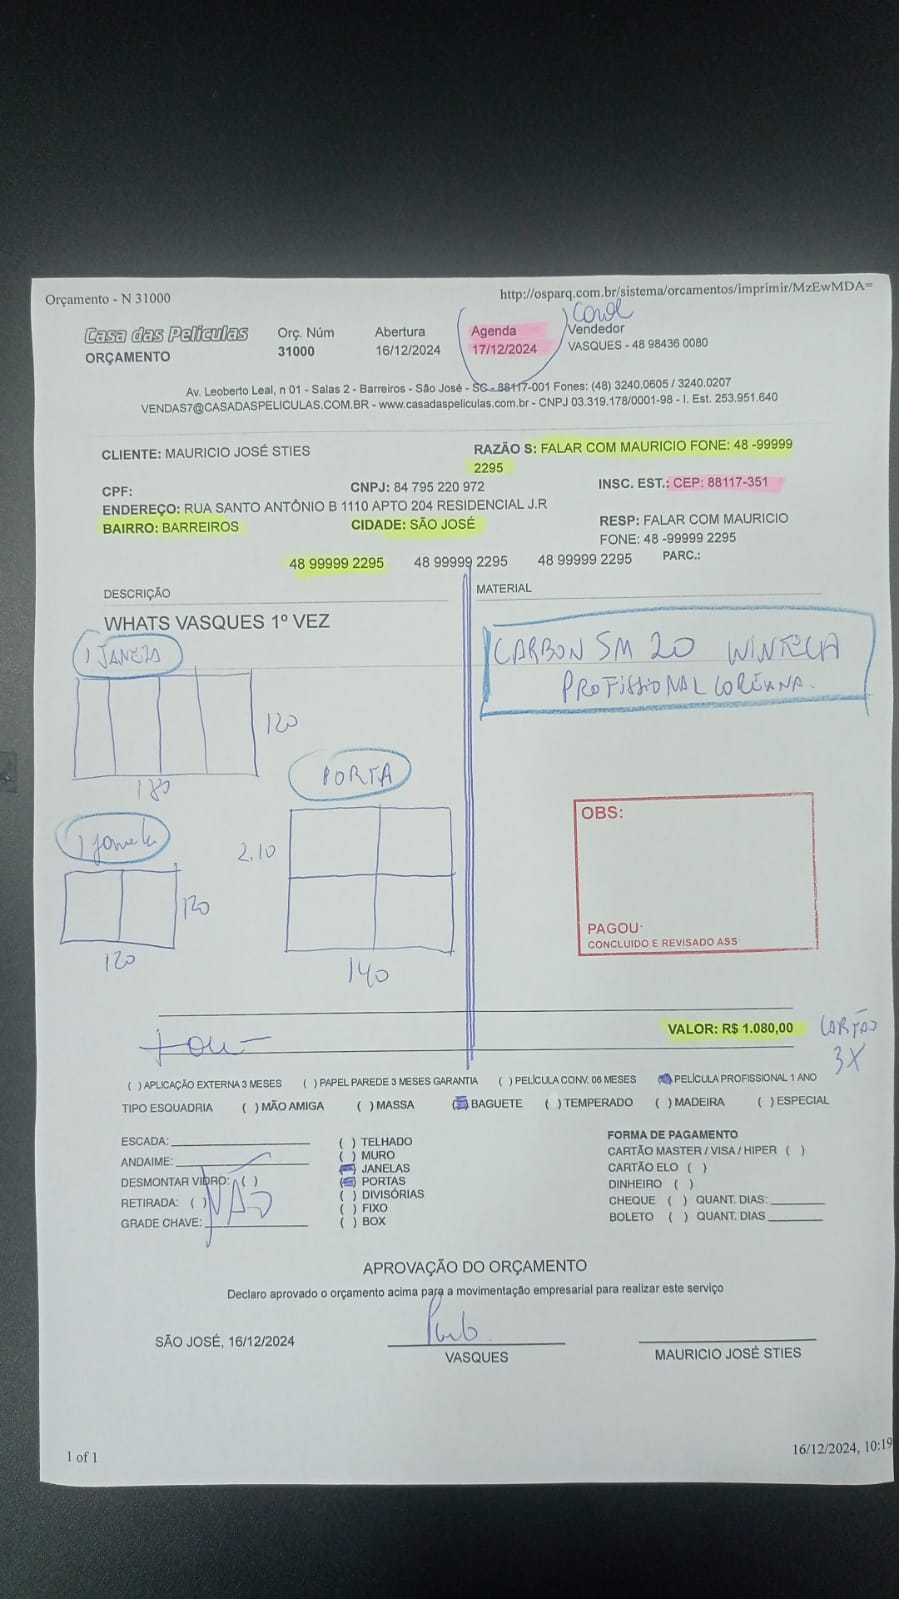 Orçamento - N 31000
http://osparq.com.br/sistema/orcamentos/imprimir/MzEwMDA=
Casa das Películas
ORÇAMENTO
Orç. Núm
31000
Abertura
16/12/2024
Agenda
17/12/2024
Vendedor
VASQUES - 48 98436 0080
Av. Leoberto Leal, n 01 - Salas 2 - Barreiros - São José - SC - 88117-001 Fones: (48) 3240.0605 / 3240.0207
VENDAS7@CASADASPELICULAS.COM.BR - www.casadaspeliculas.com.br - CNPJ 03.319.178/0001-98 - I. Est. 253.951.640
CLIENTE: MAURICIO JOSÉ STIES
RAZÃO S: FALAR COM MAURICIO FONE: 48 -99999
2295
CPF:
CNPJ: 84 795 220 972
INSC. EST.: CEP: 88117-351
ENDEREÇO: RUA SANTO ANTÔNIO B 1110 APTO 204 RESIDENCIAL J.R
BAIRRO: BARREIROS
CIDADE: SÃO JOSÉ
RESP: FALAR COM MAURICIO
FONE: 48 -99999 2295
48 99999 2295 48 99999 2295 48 99999 2295 PARC.:
DESCRIÇÃO
MATERIAL
WHATS VASQUES 1º VEZ
1 JANELA
120
180
CARBON SM 20 WINTECH
PROFISSIONAL COREANA.
PORTA
2.10
140
1 Janela
120
120
OBS:
PAGOU:
CONCLUIDO E REVISADO ASS
VALOR: R$ 1.080,00
CARTÃO
3X
( ) APLICAÇÃO EXTERNA 3 MESES ( ) PAPEL PAREDE 3 MESES GARANTIA ( ) PELÍCULA CONV. 06 MESES ( ) PELÍCULA PROFISSIONAL 1 ANO
TIPO ESQUADRIA ( ) MÃO AMIGA ( ) MASSA ( ) BAGUETE ( ) TEMPERADO ( ) MADEIRA ( ) ESPECIAL
ESCADA:
ANDAIME:
DESMONTAR VIDRO: ( )
RETIRADA: ( )
GRADE CHAVE:
NÃO
( ) TELHADO
( ) MURO
( ) JANELAS
( ) PORTAS
( ) DIVISÓRIAS
( ) FIXO
( ) BOX
FORMA DE PAGAMENTO
CARTÃO MASTER / VISA / HIPER ( )
CARTÃO ELO ( )
DINHEIRO ( )
CHEQUE ( ) QUANT. DIAS:
BOLETO ( ) QUANT. DIAS
APROVAÇÃO DO ORÇAMENTO
Declaro aprovado o orçamento acima para a movimentação empresarial para realizar este serviço
SÃO JOSÉ, 16/12/2024
VASQUES
MAURICIO JOSÉ STIES
1 of 1
16/12/2024, 10:19